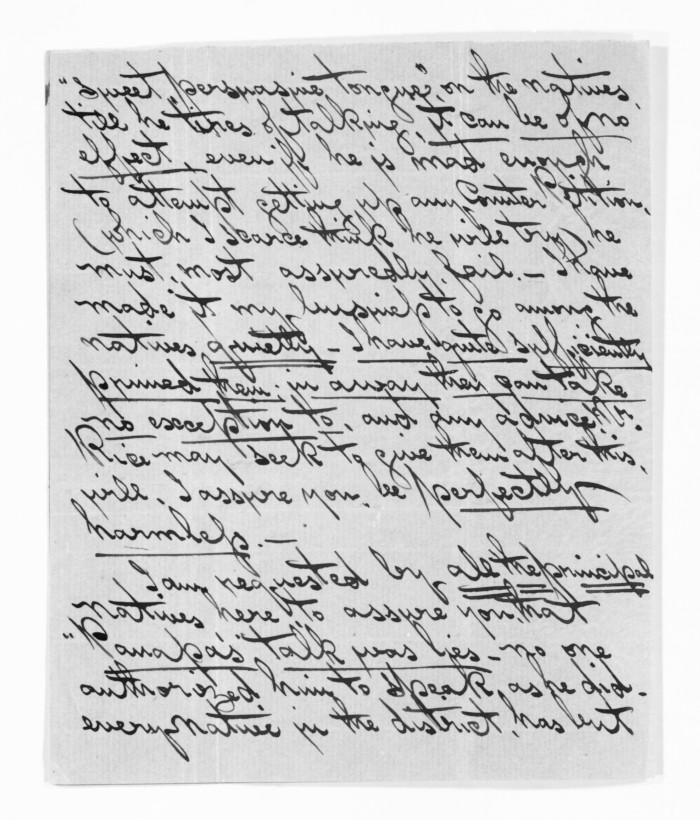 "sweet, persuasive tongue" on the natives
till he tires of talking, it can be of no
effect, even if he is mad enough
to attempt getting up any Counter Petition.
(which I scarce think he will try) he
must most assuredly fail. — I have
made it my to go among the
natives quietly — I have quite sufficiently
primed them, in a way they can take
no exception to, and any advice
Price may seek to give them after this,
will, I assure you, be perfectly
harmless. —
I am requested by all the principal
natives here, to assure you, that
talk was lies — no one
authorized him to speak as he did —
every native in the district, has but